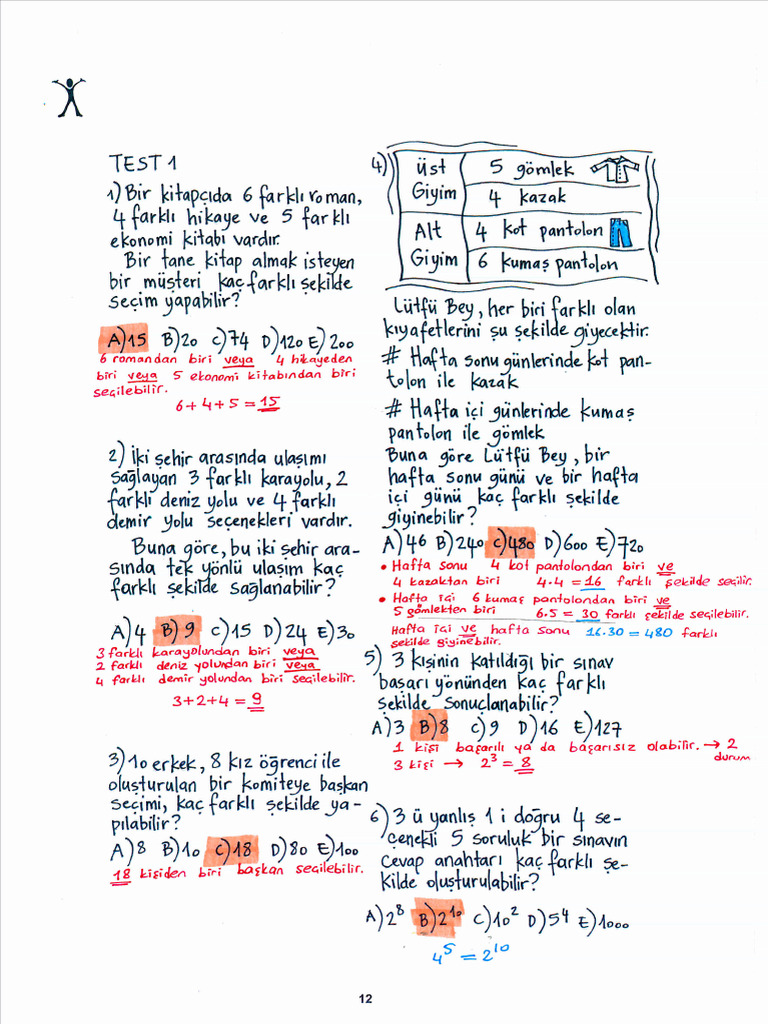 TEST 1
1) Bir kitapçıda 6 farklı roman,
4 farklı hikaye ve 5 farklı
ekonomi kitabı vardır.
Bir tane kitap almak isteyen
bir müşteri kaç farklı şekilde
seçim yapabilir?
A)15 B)20 C)74 D)120 E)200
6 romandan biri veya 4 hikayeden
biri veya 5 ekonomi kitabından biri
seçilebilir.
6+4+5=15
2) İki şehir arasında ulaşımı
sağlayan 3 farklı karayolu, 2
farklı deniz yolu ve 4 farklı
demir yolu seçenekleri vardır.
Buna göre, bu iki şehir ara-
sında tek yönlü ulaşım kaç
farklı şekilde sağlanabilir?
A)4 B)9 C)15 D)24 E)30
3 farklı karayolundan biri veya
2 farklı deniz yolundan biri veya
4 farklı demir yolundan biri seçilebilir.
3+2+4=9
3) 10 erkek, 8 kız öğrenci ile
oluşturulan bir komiteye başkan
seçimi, kaç farklı şekilde ya-
pılabilir?
A)8 B)10 C)18 D)80 E)100
18 kişiden biri başkan seçilebilir.
4) Üst Giyim 5 gömlek
4 kazak
Alt Giyim 4 kot pantolon
6 kumaş pantolon
Lütfü Bey, her biri farklı olan
kıyafetlerini şu şekilde giyecektir.
# Hafta sonu günlerinde kot pan-
tolon ile kazak
# Hafta içi günlerinde kumaş
pantolon ile gömlek
Buna göre Lütfü Bey, bir
hafta sonu günü ve bir hafta
içi günü kaç farklı şekilde
giyinebilir?
A)46 B)240 C)480 D)600 E)720
• Hafta sonu 4 kot pantolondan biri ve
4 kazaktan biri 4.4=16 farklı şekilde seçilir.
• Hafta içi 6 kumaş pantolondan biri ve
5 gömlekten biri 6.5=30 farklı şekilde seçilebilir.
Hafta içi ve hafta sonu 16.30=480 farklı
şekilde giyinebilir.
5) 3 kişinin katıldığı bir sınav
başarı yönünden kaç farklı
şekilde sonuçlanabilir?
A)3 B)8 C)9 D)16 E)127
1 kişi başarılı ya da başarısız olabilir. → 2
durum
3 kişi → 2³ = 8
6) 3 ü yanlış 1 i doğru 4 se-
çenekli 5 soruluk bir sınavın
cevap anahtarı kaç farklı şe-
kilde oluşturulabilir?
A)2⁸ B)2¹⁰ C)10² D)5⁴ E)1000
4⁵ = 2¹⁰
12